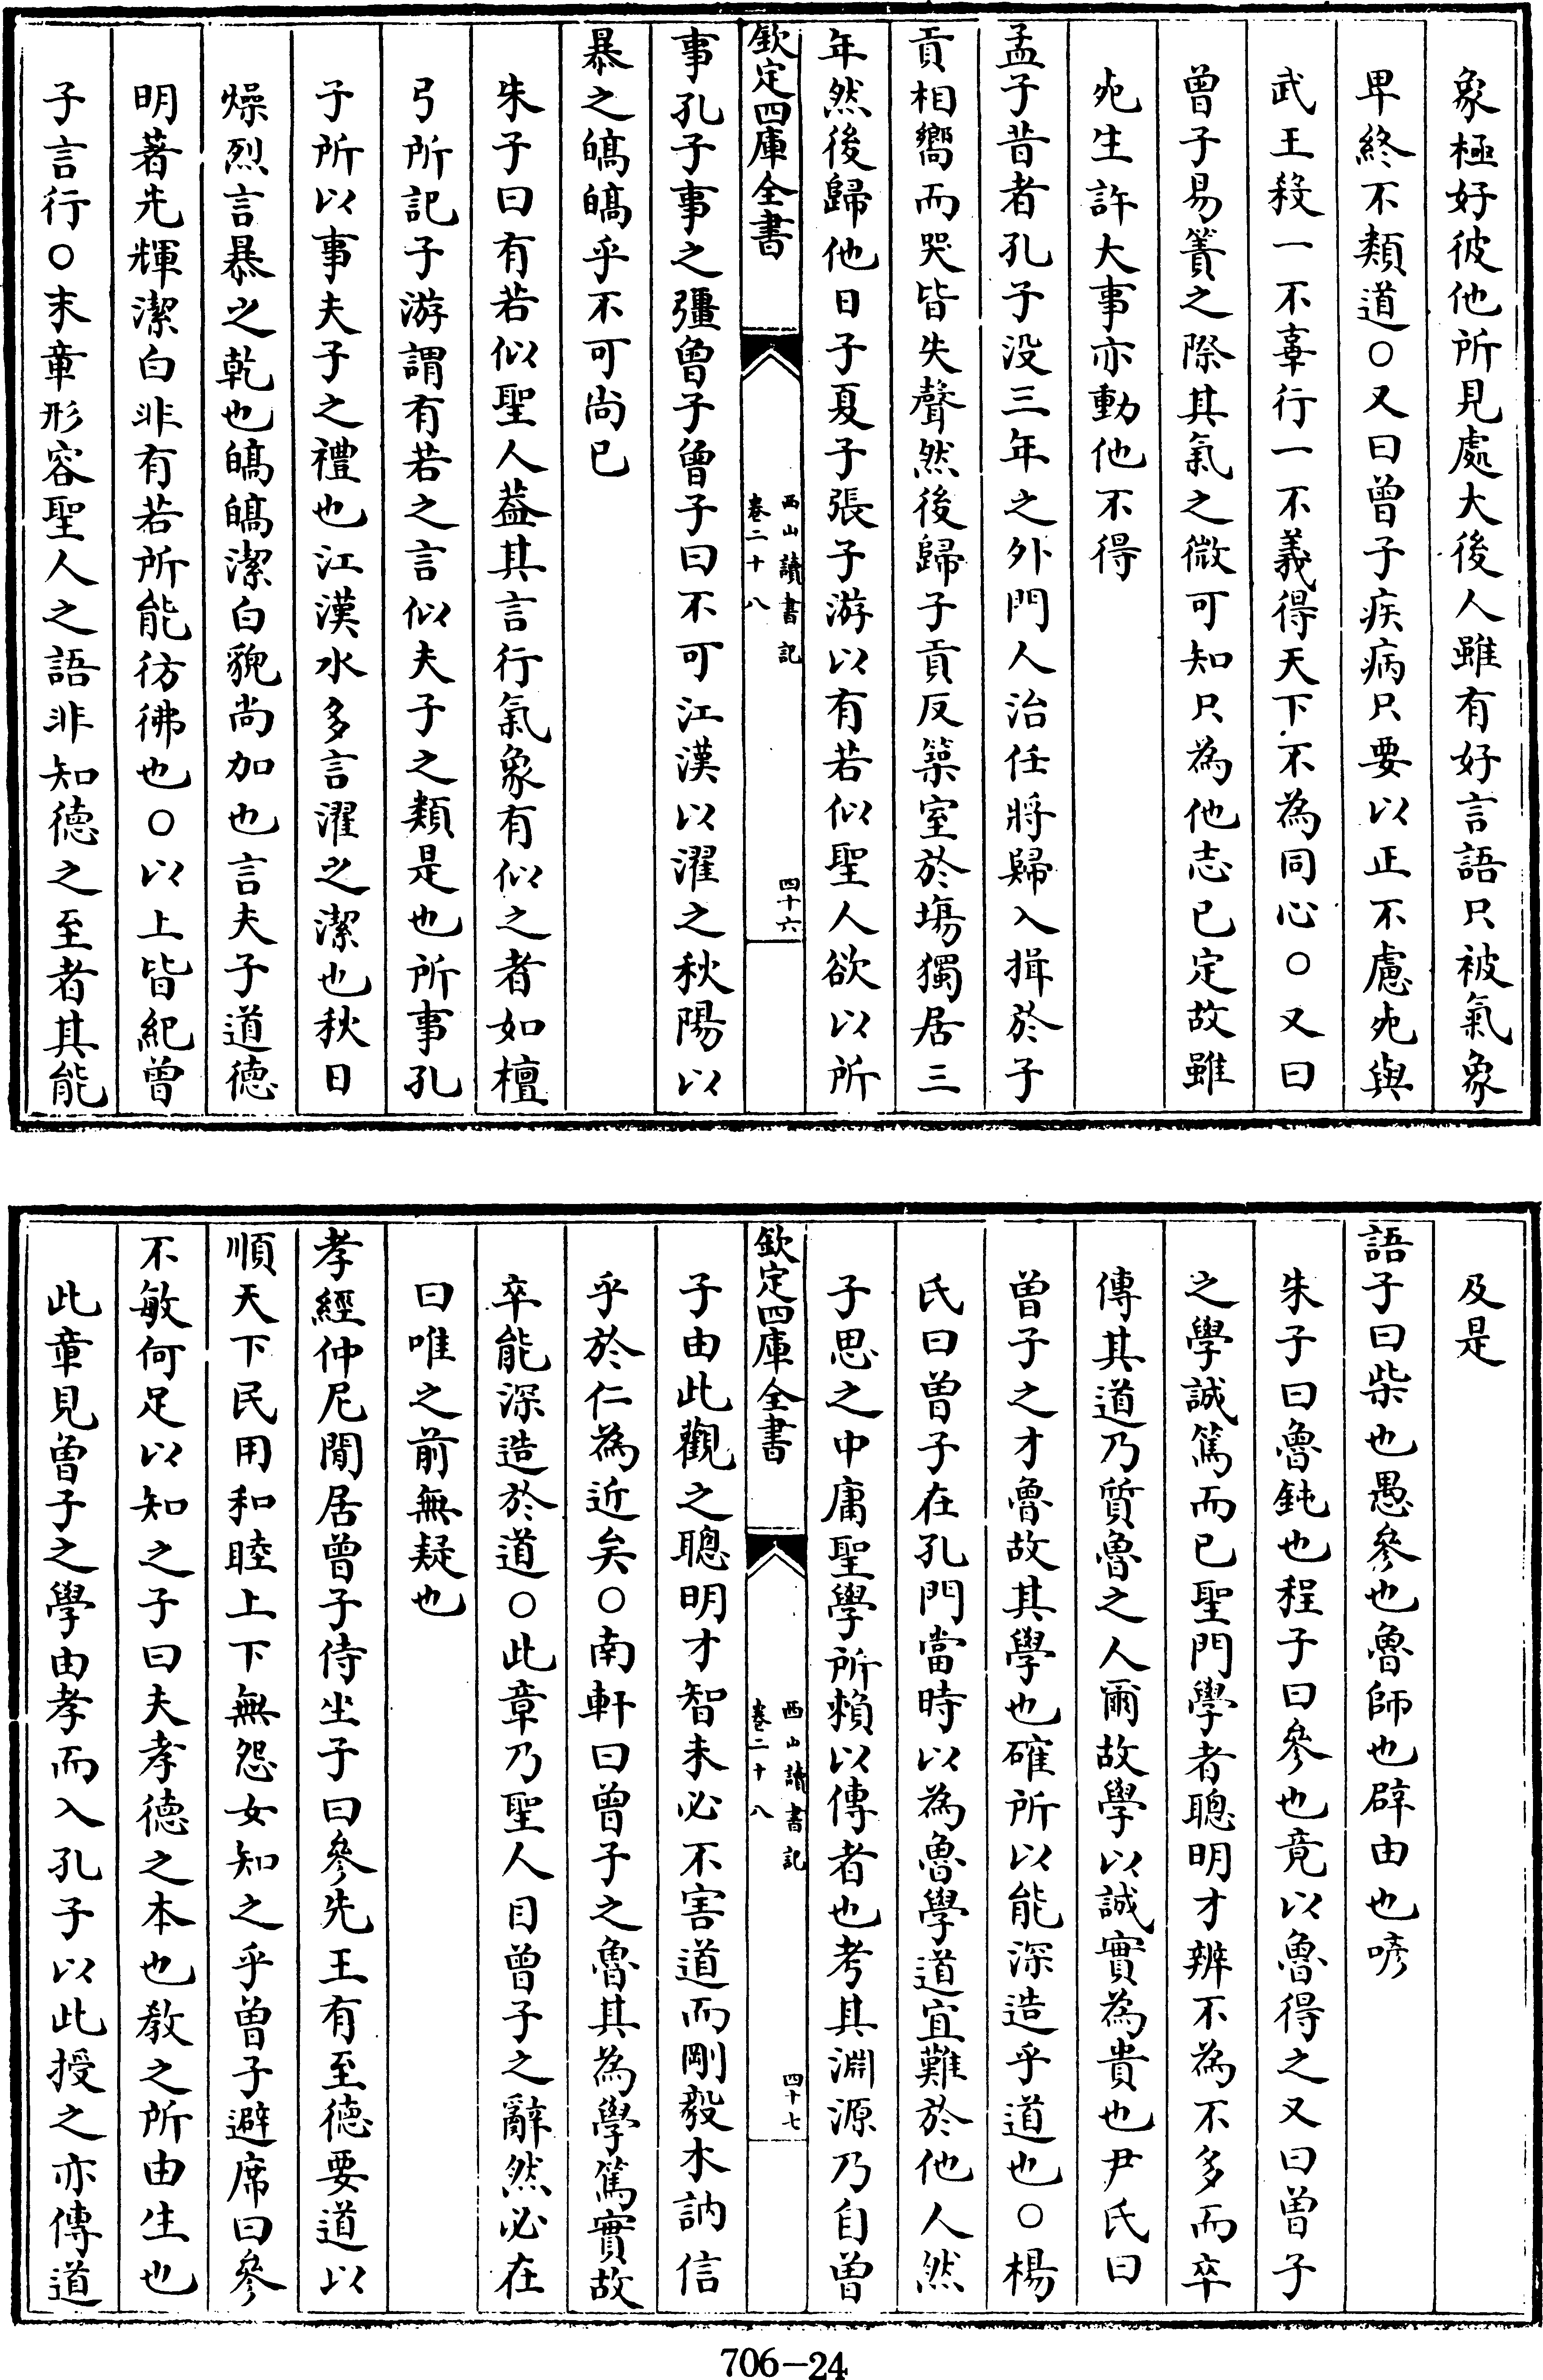 象極好彼他所見處大後人雖有好言語只被氣象
卑終不類道○又曰曾子疾病只要以正不慮死與
武王殺一不辜行一不義得天下不為同心○又曰
曾子易簀之際其氣之微可知只為他志已定故雖
死生許大事亦動他不得
孟子昔者孔子没三年之外門人治任將歸入揖於子
貢相嚮而哭皆失聲然後歸子貢反築室於塲獨居三
年然後歸他日子夏子張子游以有若似聖人欲以所
欽定四庫全書
西山讀書記
卷二十八
四十六
事孔子事之彊曾子曾子曰不可江漢以濯之秋陽以
暴之皜皜乎不可尚已
朱子曰有若似聖人葢其言行氣象有似之者如檀
弓所記子游謂有若之言似夫子之類是也所事孔
子所以事夫子之禮也江漢水多言濯之潔也秋日
燥烈言暴之乾也皜皜潔白貌尚加也言夫子道德
明著先輝潔白非有若所能彷彿也○以上皆紀曾
子言行○末章形容聖人之語非知德之至者其能
及是
語子曰柴也愚參也魯師也辟由也喭
朱子曰魯鈍也程子曰參也竟以魯得之又曰曾子
之學誠篤而已聖門學者聰明才辨不為不多而卒
傳其道乃質魯之人爾故學以誠實為貴也尹氏曰
曾子之才魯故其學也確所以能深造乎道也○楊
氏曰曾子在孔門當時以為魯學道宜難於他人然
子思之中庸聖學所賴以傳者也考其淵源乃自曾
欽定四庫全書
西山讀書記
卷二十八
四十七
子由此觀之聰明才智未必不害道而剛毅木訥信
乎於仁為近矣○南軒曰曾子之魯其為學篤實故
卒能深造於道○此章乃聖人目曾子之辭然必在
曰唯之前無疑也
孝經仲尼閒居曾子侍坐子曰參先王有至德要道以
順天下民用和睦上下無怨女知之乎曾子避席曰參
不敏何足以知之子曰夫孝德之本也教之所由生也
此章見曾子之學由孝而入孔子以此授之亦傳道
706-24